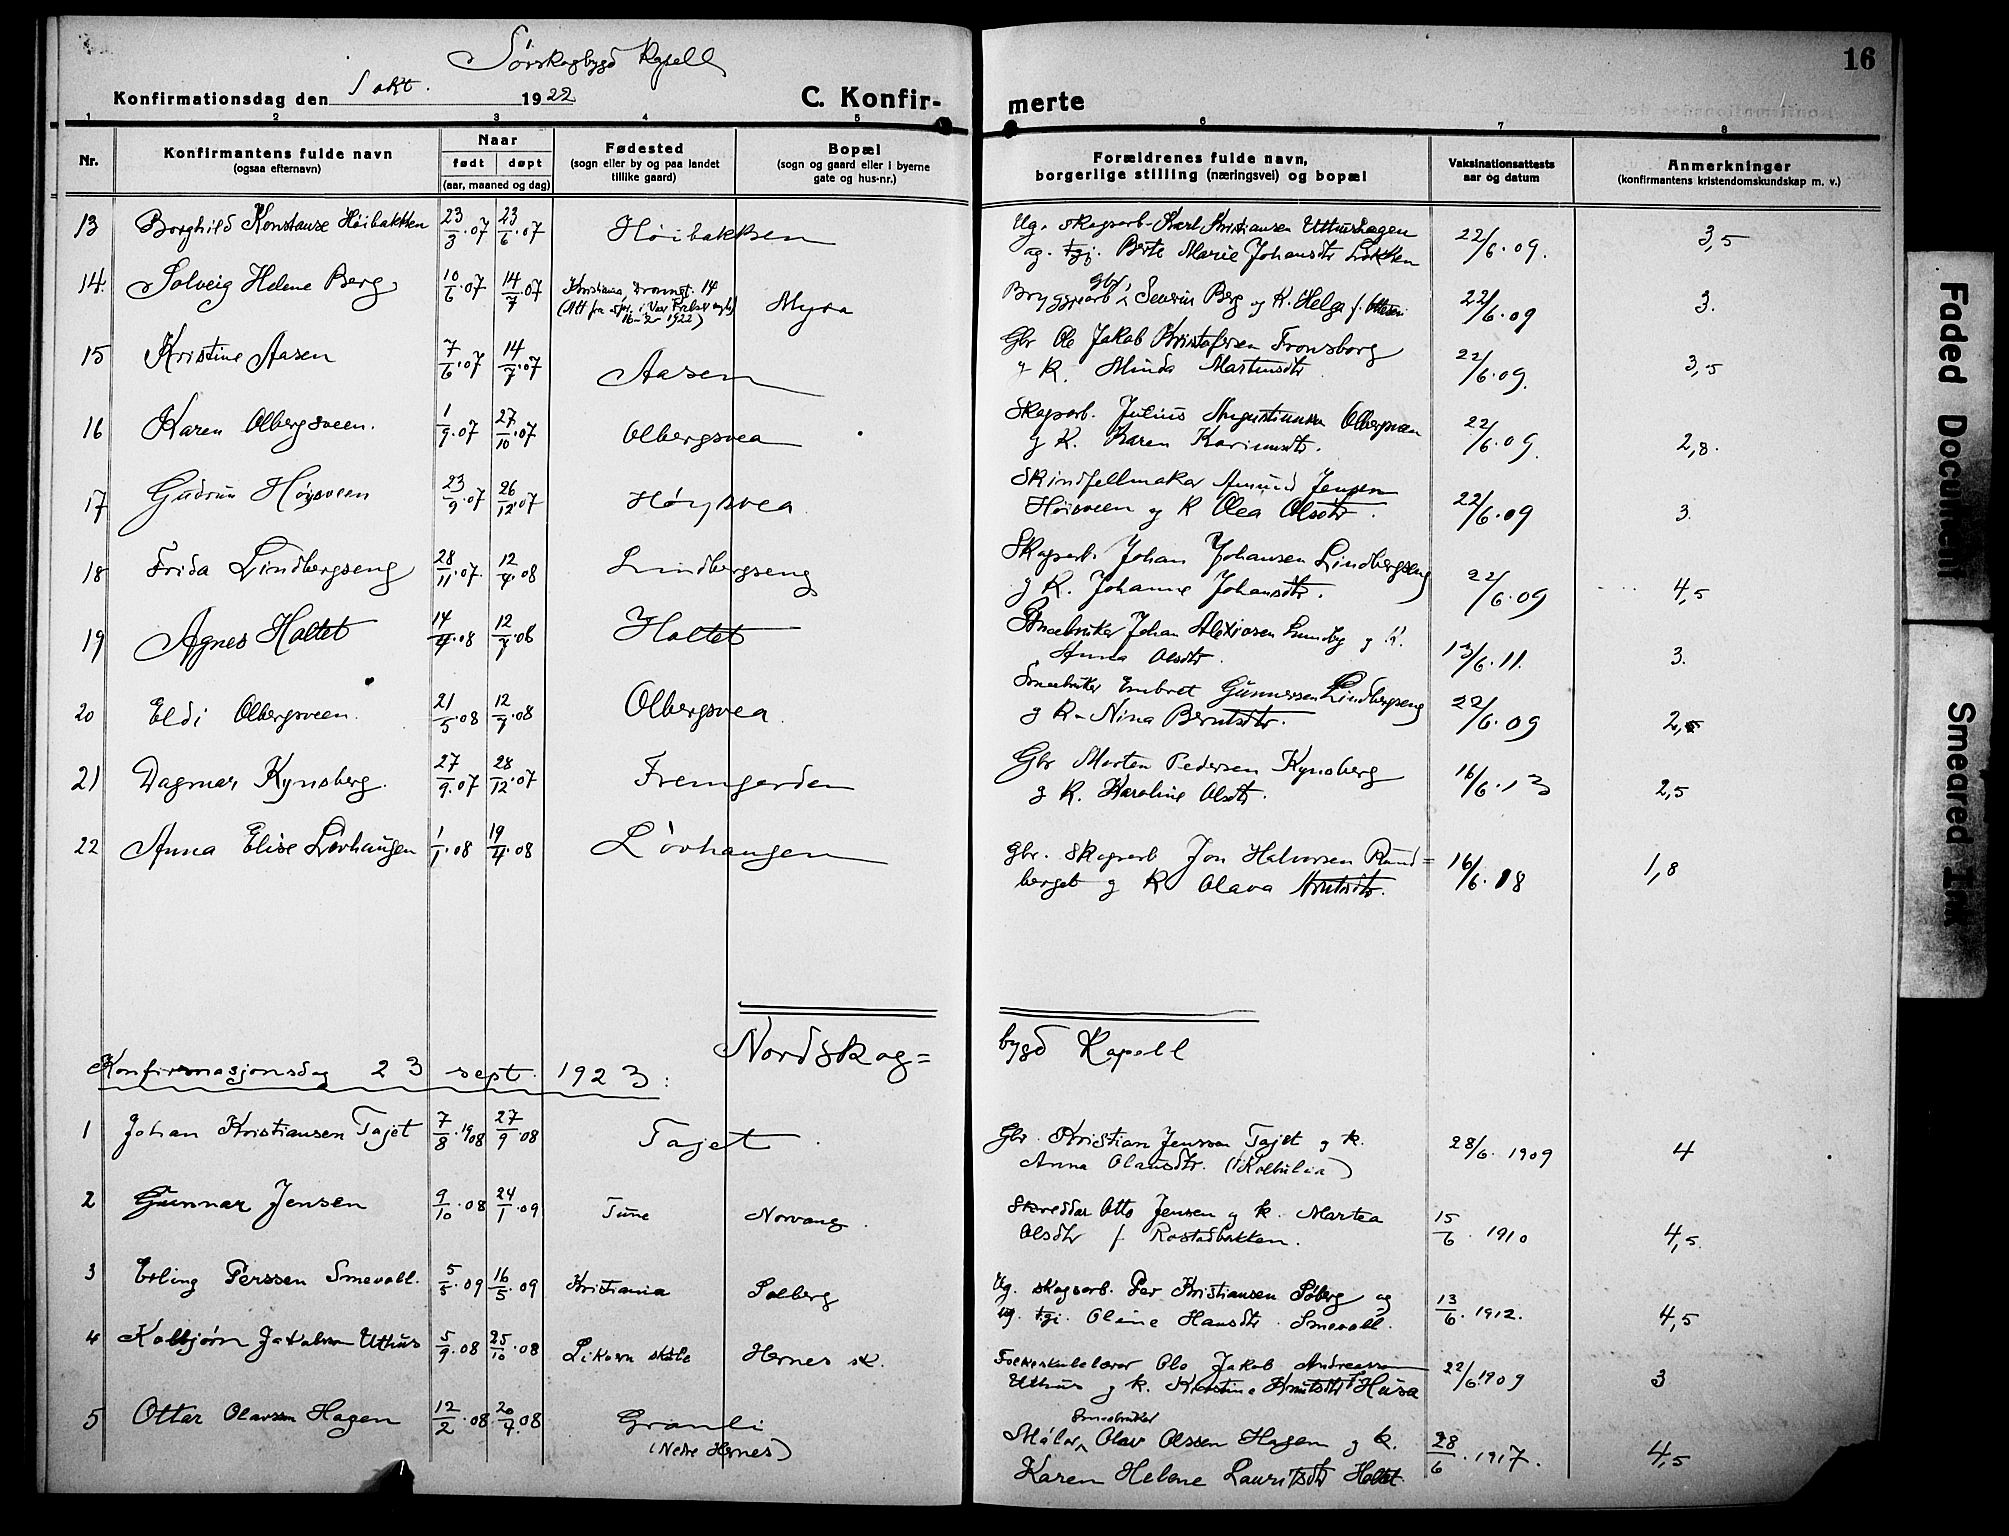 Sørskogbygd Kapell
16
Konfirmationsdag den 1 okt. 1922
C. Konfirmerte
1 2 3 4 5 6 7 8
Nr.
Konfirmantens fulde navn
(ogsaa efternavn)
Naar
født døpt
(aar, maaned og dag)
Fødested
(sogn eller by og paa landet
tillike gaard)
Bopæl
(sogn og gaard eller i byerne
gate og hus-nr.)
Forældrenes fulde navn,
borgerlige stilling (næringsvei) og bopæl
Vaksinationsattests
aar og datum
Anmerkninger
(konfirmantens kristendomskundskap m. v.)
13 Borghild Konstanse Høibakken 23/3.07 23/6.07 Høibakken Ug. skogsarb. Karl Kristiansen Uthushagen 22/6.09. 3,5
og tgj. Berte Marie Johansdtr Løkken
14. Solveig Helene Berg 10/6.07 14/7.07 Kristiania, 14 Myra Bryggearb. Severin Berg og K. Helga f. Olsen 22/6.09 3.
(Att fra spr. i Vor Frelser
16-2- 1922)
15 Kristine Aasen 7/6.07 14/7.07 Aasen Gbr Ole Jakob Kristofersen Tronsborg 22/6.09. 3,5
og K. Minda Martinsdtr
16 Karen Olbergsveen. 1/9.07 27/10.07 Olbergsvea Skogsarb. Julius Augustinusen Olbergsveen 22/6.09. 2,8.
og K. Karen Karinusdtr.
17 Gudrun Høysveen 23/9.07 26/12.07 Høysvea. Skindfellmaker Amund Jensen 22/6.09 3.
Høisveen og K Olea Olsdtr.
18 Frida Lindbergseng 28/11.07. 12/4.08 Lindbergseng Skogsarb. Johan Johansen Lindbergseng 22/6.09 4,5
og K. Johanne Johansdtr.
19 Agnes Holtet 14/4.08 12/7.08 Holtet Smaabruker Johan Alexiosen Lundby og K. 13/6.11. 3.
Anna Olsdtr.
20 Eldi Olbergsveen. 21/5.08 12/7.08 Olbergsvea. Smaabruker Embret Gunnersen Lindbergseng 22/6.09 2,5
og K. Nina Berntsdtr.
21 Dagmar Kynsberg. 27/9.07 28/12.07 Fremgarden Gbr Morten Pedersen Kynsberg 16/6.13 2,5
og K. Karoline Olsdtr.
22 Anna Elise Løvhaugen 1/1.08 19/4.08 Løvhaugen Gbr. skogsarb Jon Halvorsen Rund= 16/6.18 1,8
berget og K Olava Knutsdtr.
Nordskog= bygd Kapell
Konfirmasjonsdag 23 sept. 1923:
1 Johan Kristiansen Tajet 7/8.1908 27/9.08 Tajet. Gbr. Kristian Jensson Tajet og k. 28/6.1909 4
Anna Olausdtr. (Kolbulia)
2 Gunnar Jensen 9/10.08 24/1.09 Tune Norvang. Skreddar Otto Jensen og k. Martea 15/6.1910 4,5.
Olsdtr f. Rostadbakken.
3 Erling Perssen Smevoll. 5/5.09 16/5.09 Kristiania Solberg Ug. skogsarb. Per Kristiansen Søberg og 13/6.1912. 4,5
ug. tgj. Oline Hansdtr. Smevoll.
4 Kolbjørn Jakobsen Uthus 5/9.08 25/10.08 Likosen skole Hernes sk. Folkeskulelærar Ole Jakob Andreassen 22/6.1909 3
Uthus og k. Kristine Knutsdtr f. Husa
5 Ottar Olavssen Hagen 12/2.08. 20/4.08 Granli Smaabruker
Målar, Olav Olssen Hagen og k. 28/6.1917. 4,5
(Nedre Hernes)
Karen Helene Lauritsdtr Holtet.
Faded Document
Smeared Ink